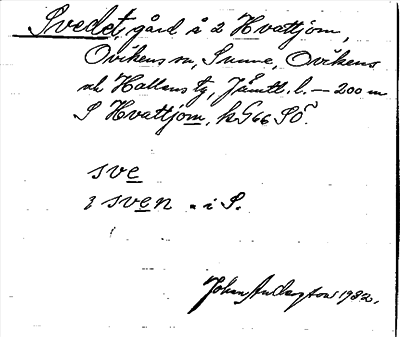 Svedet, gård å 2 Hvattjom,
Ovikens sn, Sunne, Ovikens
och Hallens tg, Jämtl. l. — 200 m
S Hvattjom, k G66 SÖ.
sve
i sven " i S.
Johan Anderzton 1932.